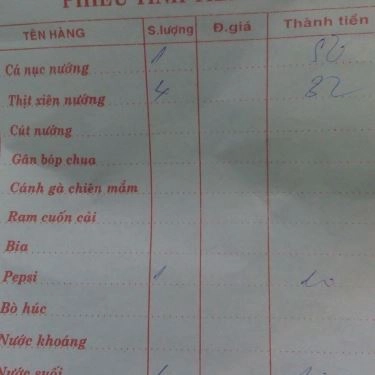 PHIẾU TÍNH TIỀN
TÊN HÀNG S.lượng Đ.giá Thành tiền
Cá nục nướng 1 50
Thịt xiên nướng 4 32
Cút nướng
Gân bóp chua
Cánh gà chiên mắm
Ram cuốn cải
Bia
Pepsi 1 10
Bò húc
Nước khoáng
Nước suối